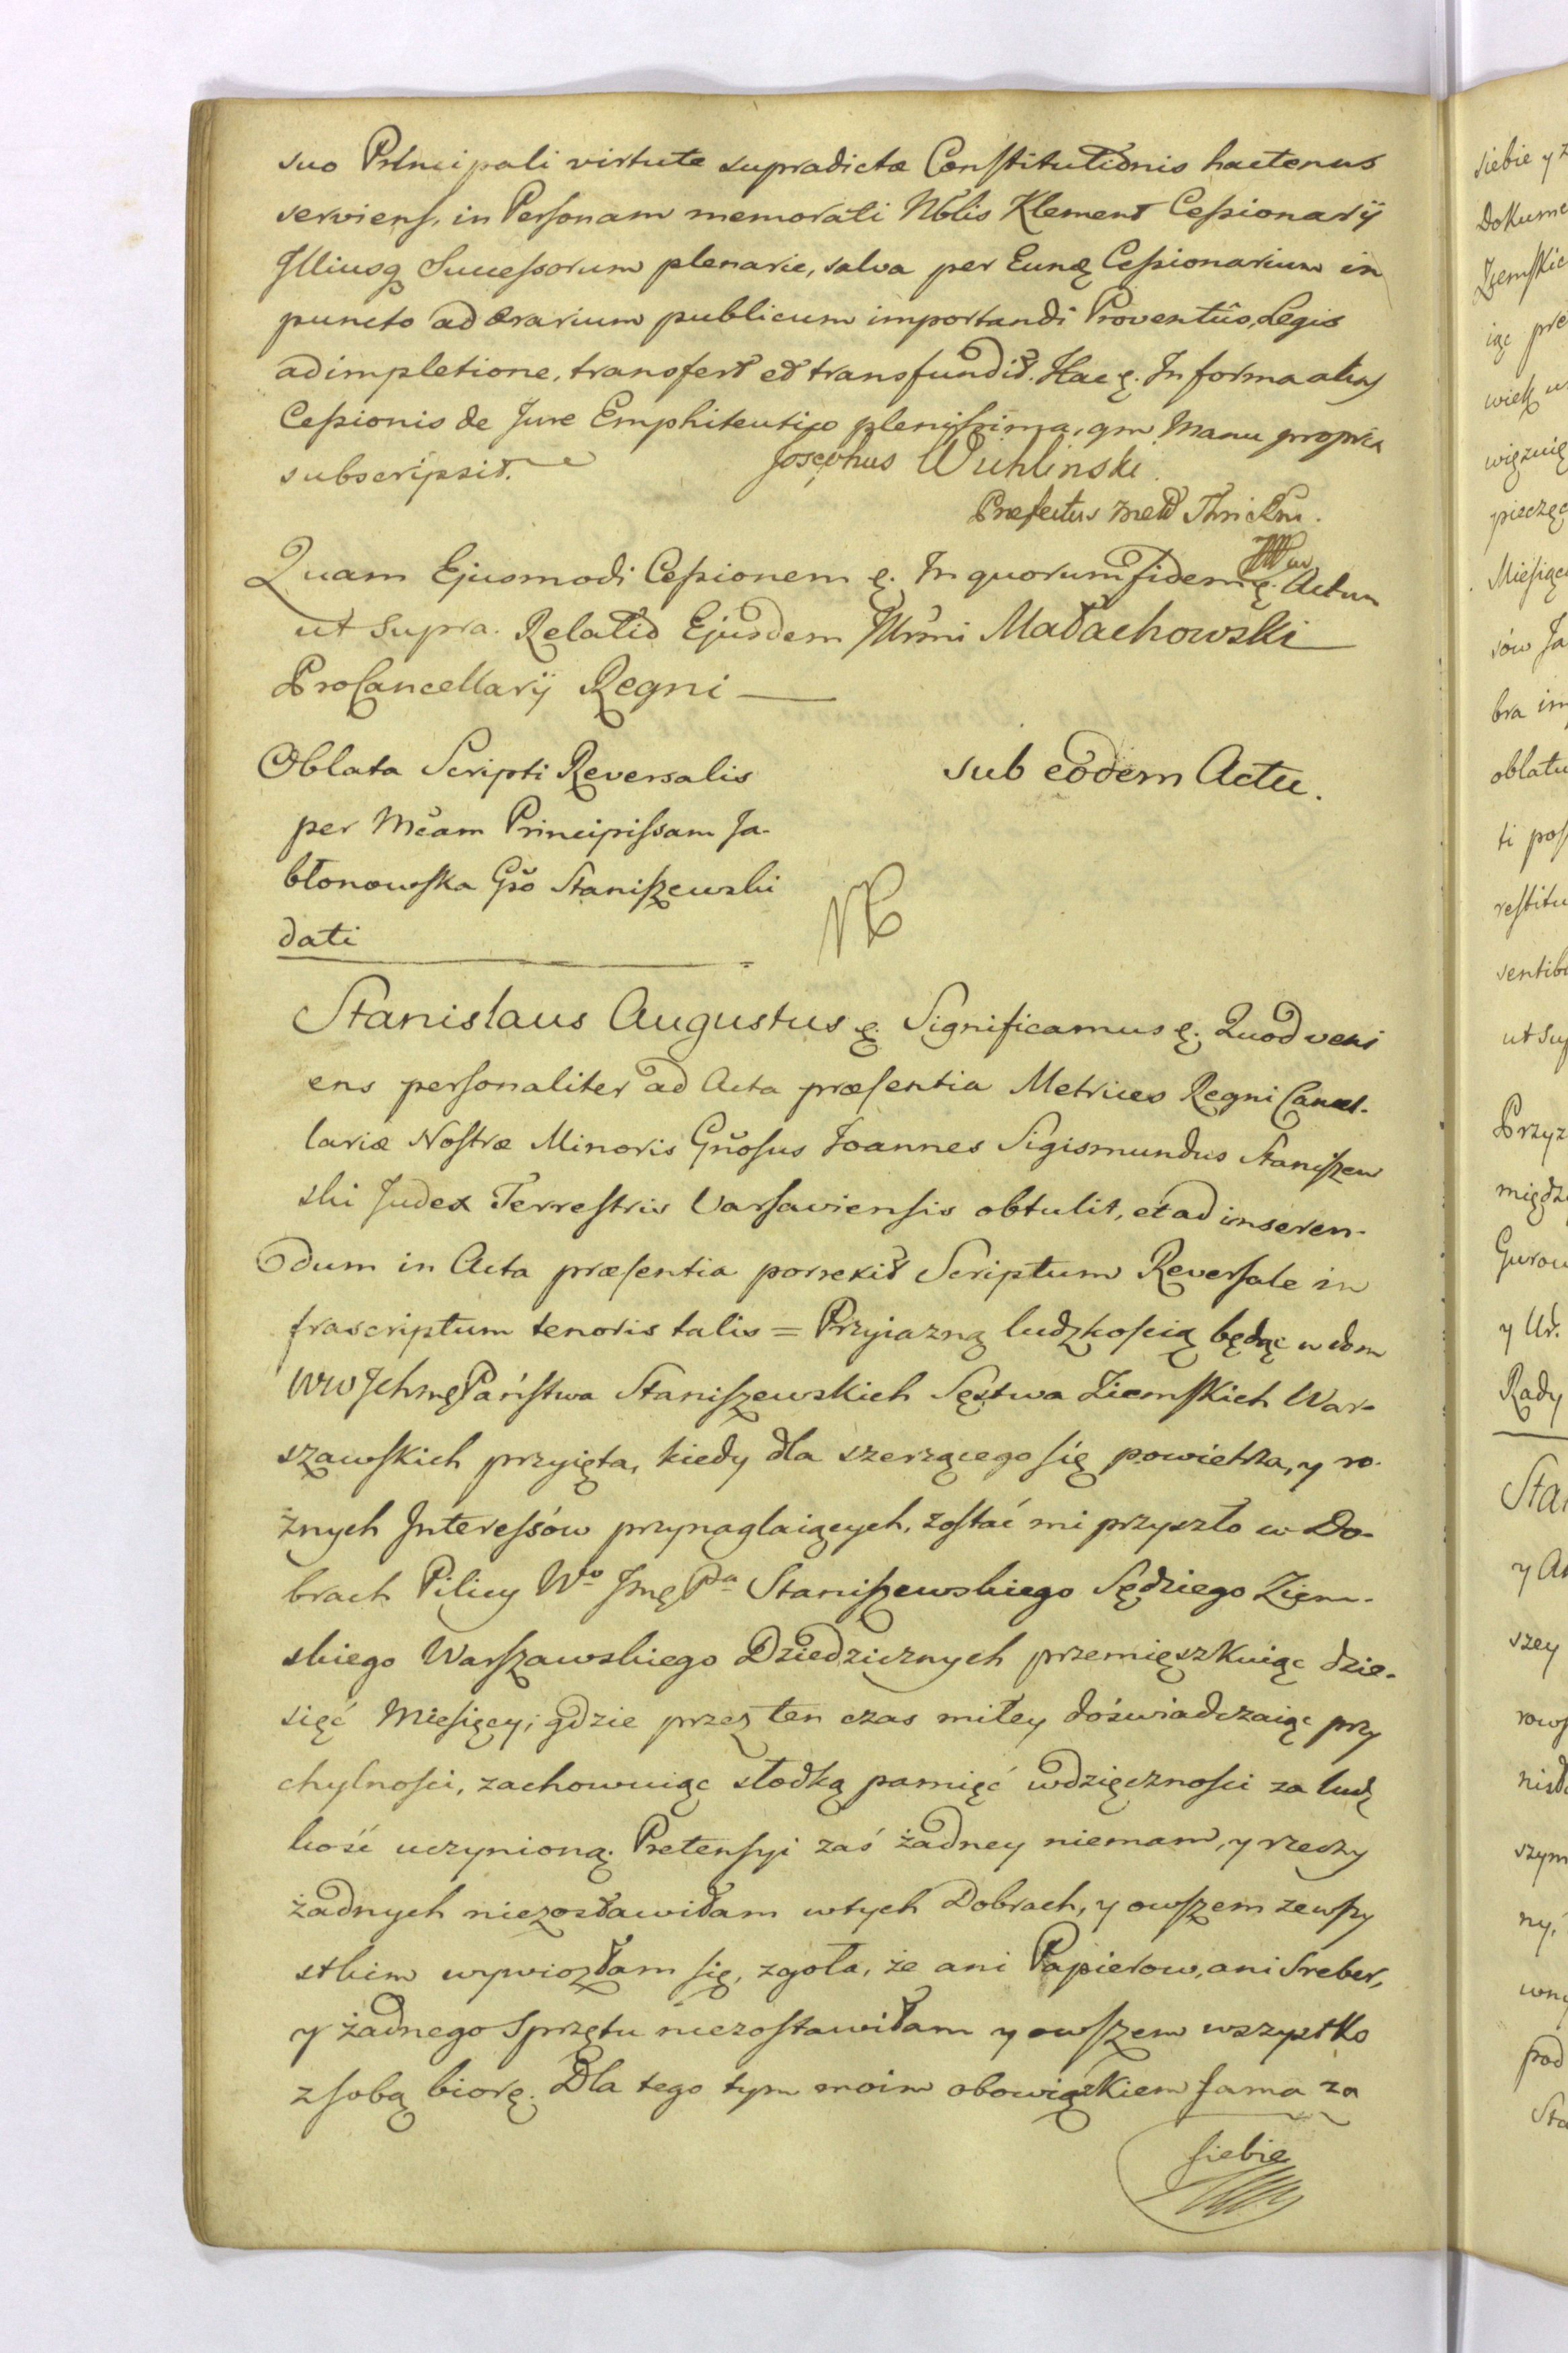 suo Principali virtute supradictæ Constitutionis hactenus
serviens, in Personam memorati Nblis Klement Cessionarij
Illiusq Successorum plenarie, salva per Eunq Cessionarium in
puncto ad Ærarium publicum importandi Proventûs, Legis
adimpletione, transfert et transfundit. Hac ę. In forma alias
Cessionis de Jure Emphiteutico plenissima, qm Manu propria
subscripsit.
Josephus Wichlinski
Præfectus
Quam Ejusmodi Cessionem ę. In quorum fidem ę. Actum
ut supra. Relatio Ejusdem Illrmi Małachowski
ProCancellarij Regni
Oblata Scripti Reversalis
per Mčam Principissam Ja-
błonowska Gso Staniszewski
dati
sub eodem Actu.
Stanislaus Augustus ę. Significamus ę. Quod veni
ens personaliter ad Acta præsentia Metrices Regni Cancel-
lariæ Nostræ Minoris Gnosus Joannes Sigismundus Staniszew
ski Judex Terrestris Varsaviensis obtulit, et ad inseren-
dum in Acta præsentia porrexit Scriptum Reversale in
frascriptum tenoris talis = Przyiazną ludzkością będąc w dom
WW Jchmę Państwa Staniszewskich Sęstwa Ziemskich War-
szawskich przyięta, kiedy dla szerzącego się powietrza, y ro-
żnych Interessów przynaglaiących, zostać mi przyszło w Do-
brach Pilicy Wo Jmę Pa Staniszewskiego Sędziego Ziem-
skiego Warszawskiego Dziedzicznych przemięszkuiąc dzie-
sięć Miesięcy; gdzie przez ten czas miłey doświadczaiąc przy
chylności, zachowuiąc słodką pamięć wdzięczności za ludz
kość uczynioną. Pretensyi zaś żadney niemam, y rzeczy
żadnych niezostawiłam wtych Dobrach, y owszem zewszy
stkim wywiozłam się, zgoła, że ani Papierow, ani Sreber,
y żadnego Sprzętu niezostawiłam y owszem wszystko
z sobą biorę. Dla tego tym moim obowiązkiem sama za
siebie